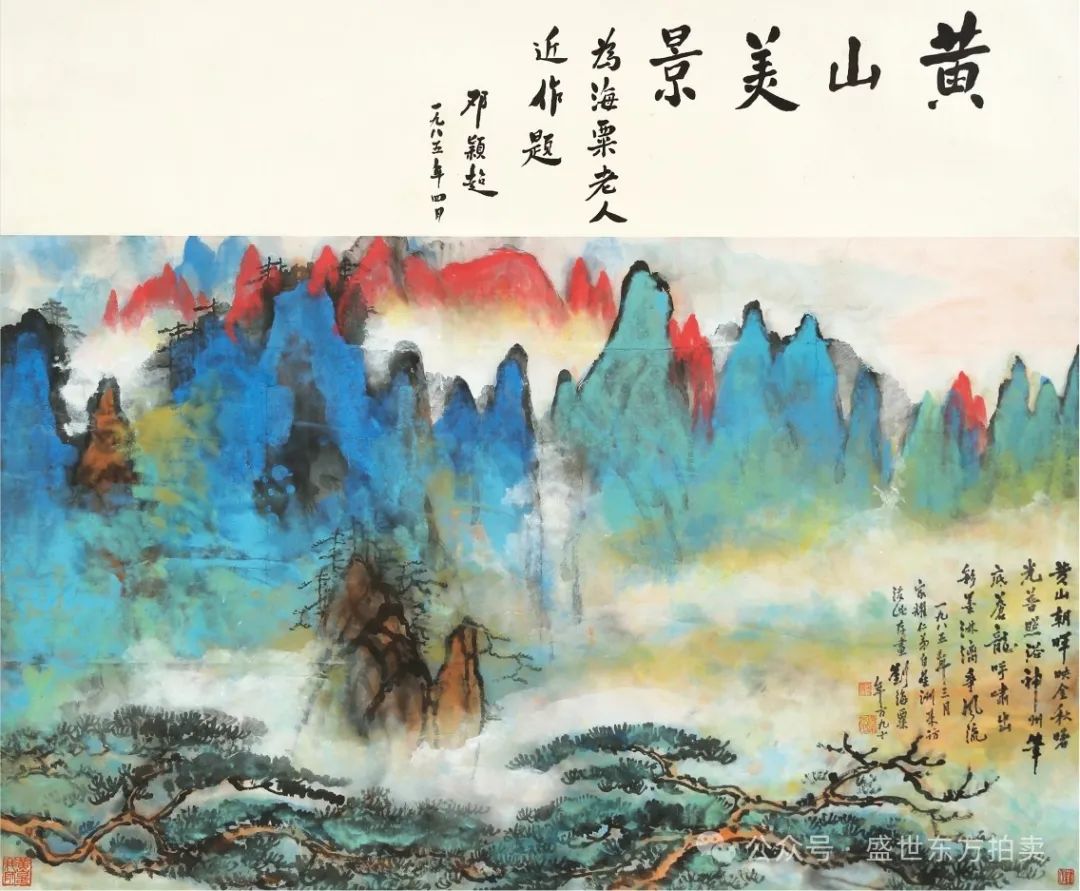 黄山美景
為海粟老人
近作题
邓颖超
一九八五年四月
黄山朝暉映金秋曙
光普照浴神州筆
底蒼龍呼嘯出
彩墨淋漓争風流
一九八五年三月
家耀仁弟自星洲来訪
劉海粟
年方九十
公众号 · 盛世东方拍卖